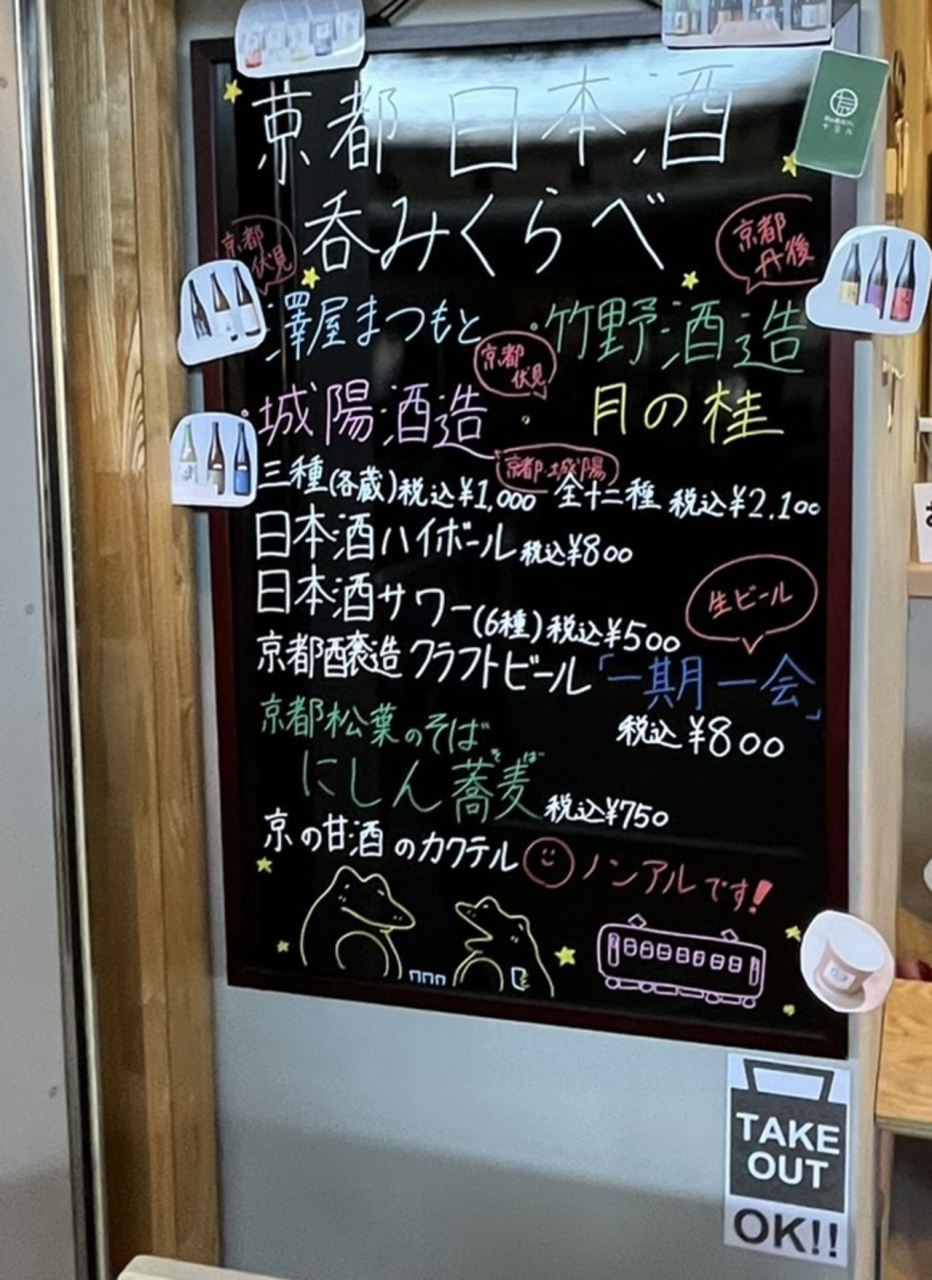 京都 日本酒
呑みくらべ
京都伏見
京都丹後
澤屋まつもと ・竹野酒造
京都伏見
・城陽酒造 ・ 月の桂
京都・城陽
三種(各蔵)税込¥1,000 全十二種 税込¥2,100
日本酒ハイボール 税込¥800
日本酒サワー(6種)税込¥500
生ビール
京都醸造 クラフトビール「一期一会」
税込 ¥800
京都松葉のそば
にしん蕎麦 税込¥750
そば
京の甘酒のカクテル ノンアルです!
TAKE
OUT
OK!!